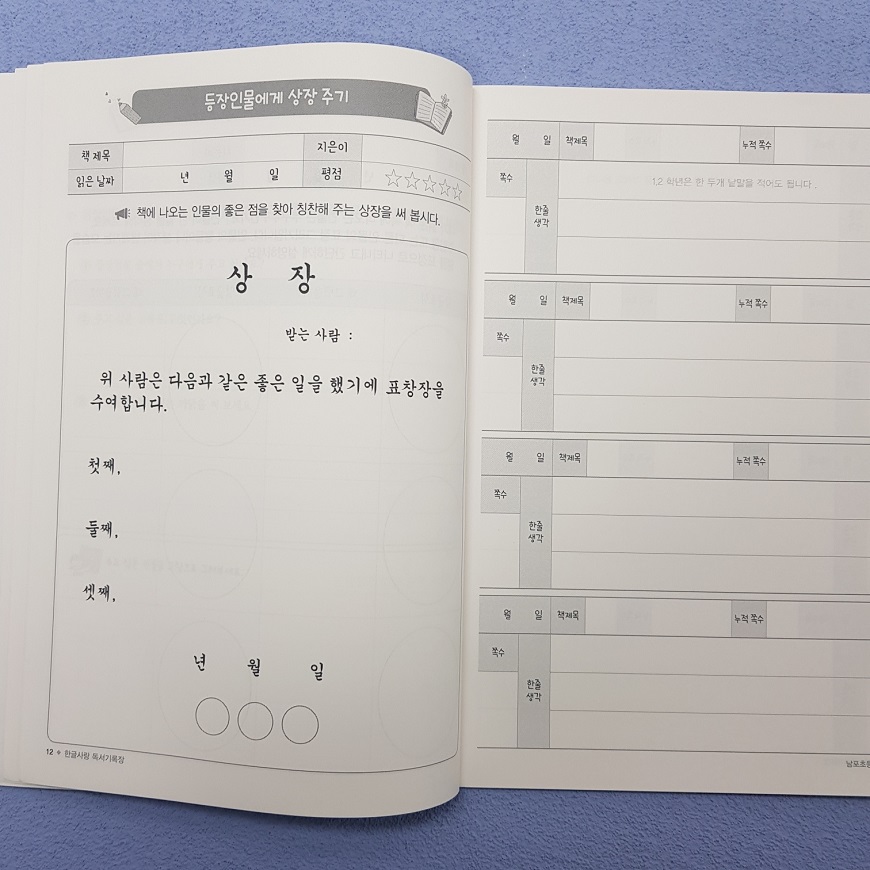 등장인물에게 상장 주기
책 제목 지은이
읽은 날짜 년 월 일 평점 ☆☆☆☆☆
책에 나오는 인물의 좋은 점을 찾아 칭찬해 주는 상장을 써 봅시다.
상 장
받는 사람 :
위 사람은 다음과 같은 좋은 일을 했기에 표창장을
수여합니다.
첫째,
둘째,
셋째,
년 월 일
12 한글사랑 독서기록장
월 일 책제목 누적 쪽수
쪽수 1,2 학년은 한 두개 낱말을 적어도 됩니다.
한줄
생각
월 일 책제목 누적 쪽수
쪽수
한줄
생각
월 일 책제목 누적 쪽수
쪽수
한줄
생각
월 일 책제목 누적 쪽수
쪽수
한줄
생각
남포초등